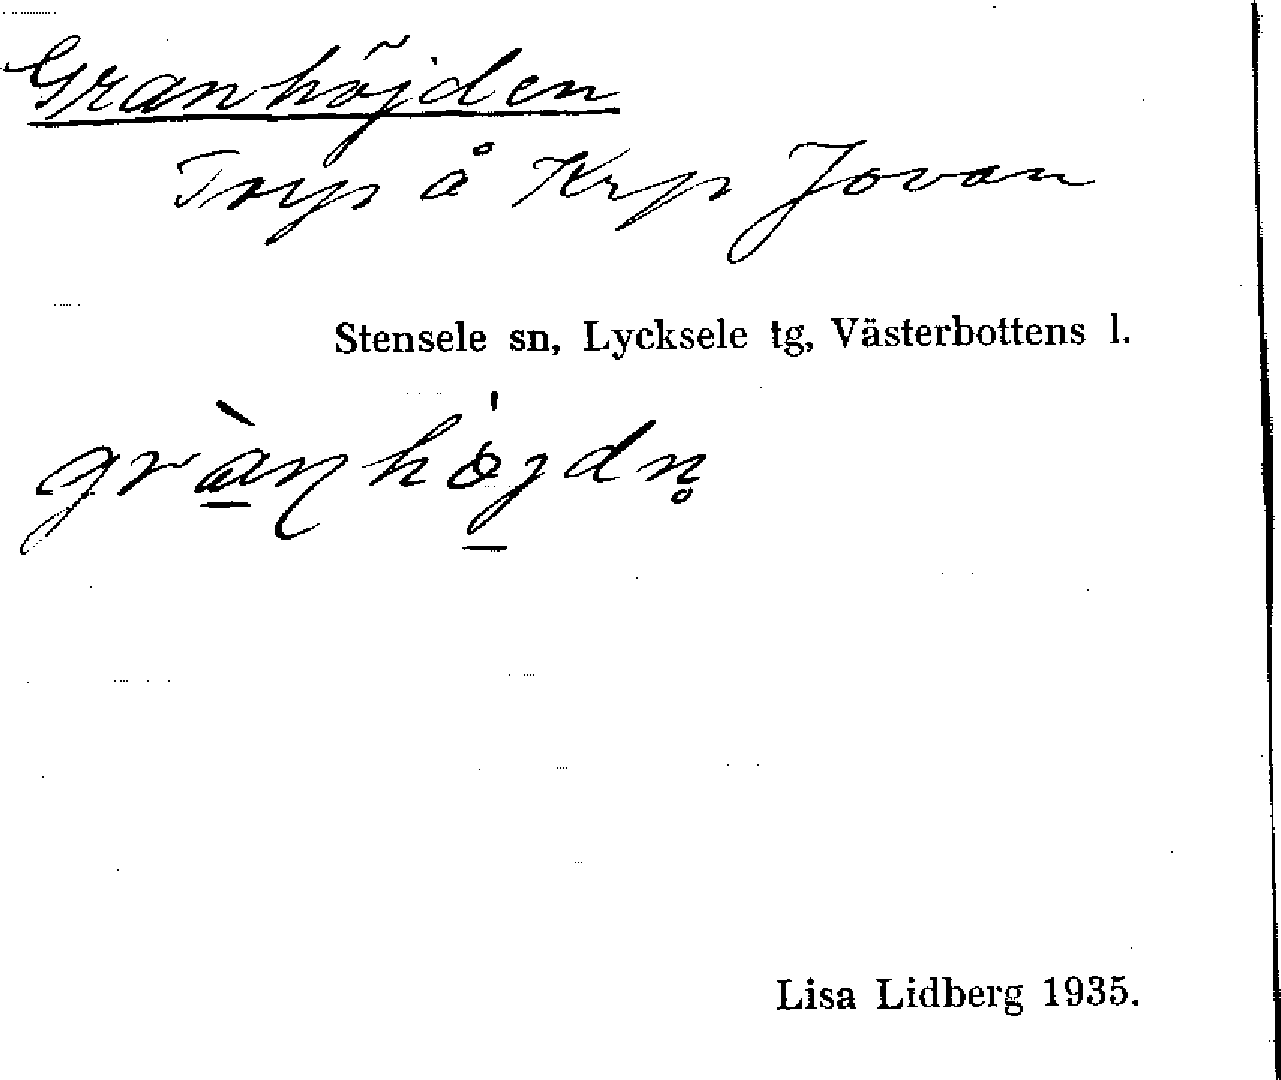 Granhöjden
Torp å Krp Jovan
Stensele sn, Lycksele tg, Västerbottens l.
grànhö́jdn̥
Lisa Lidberg 1935.